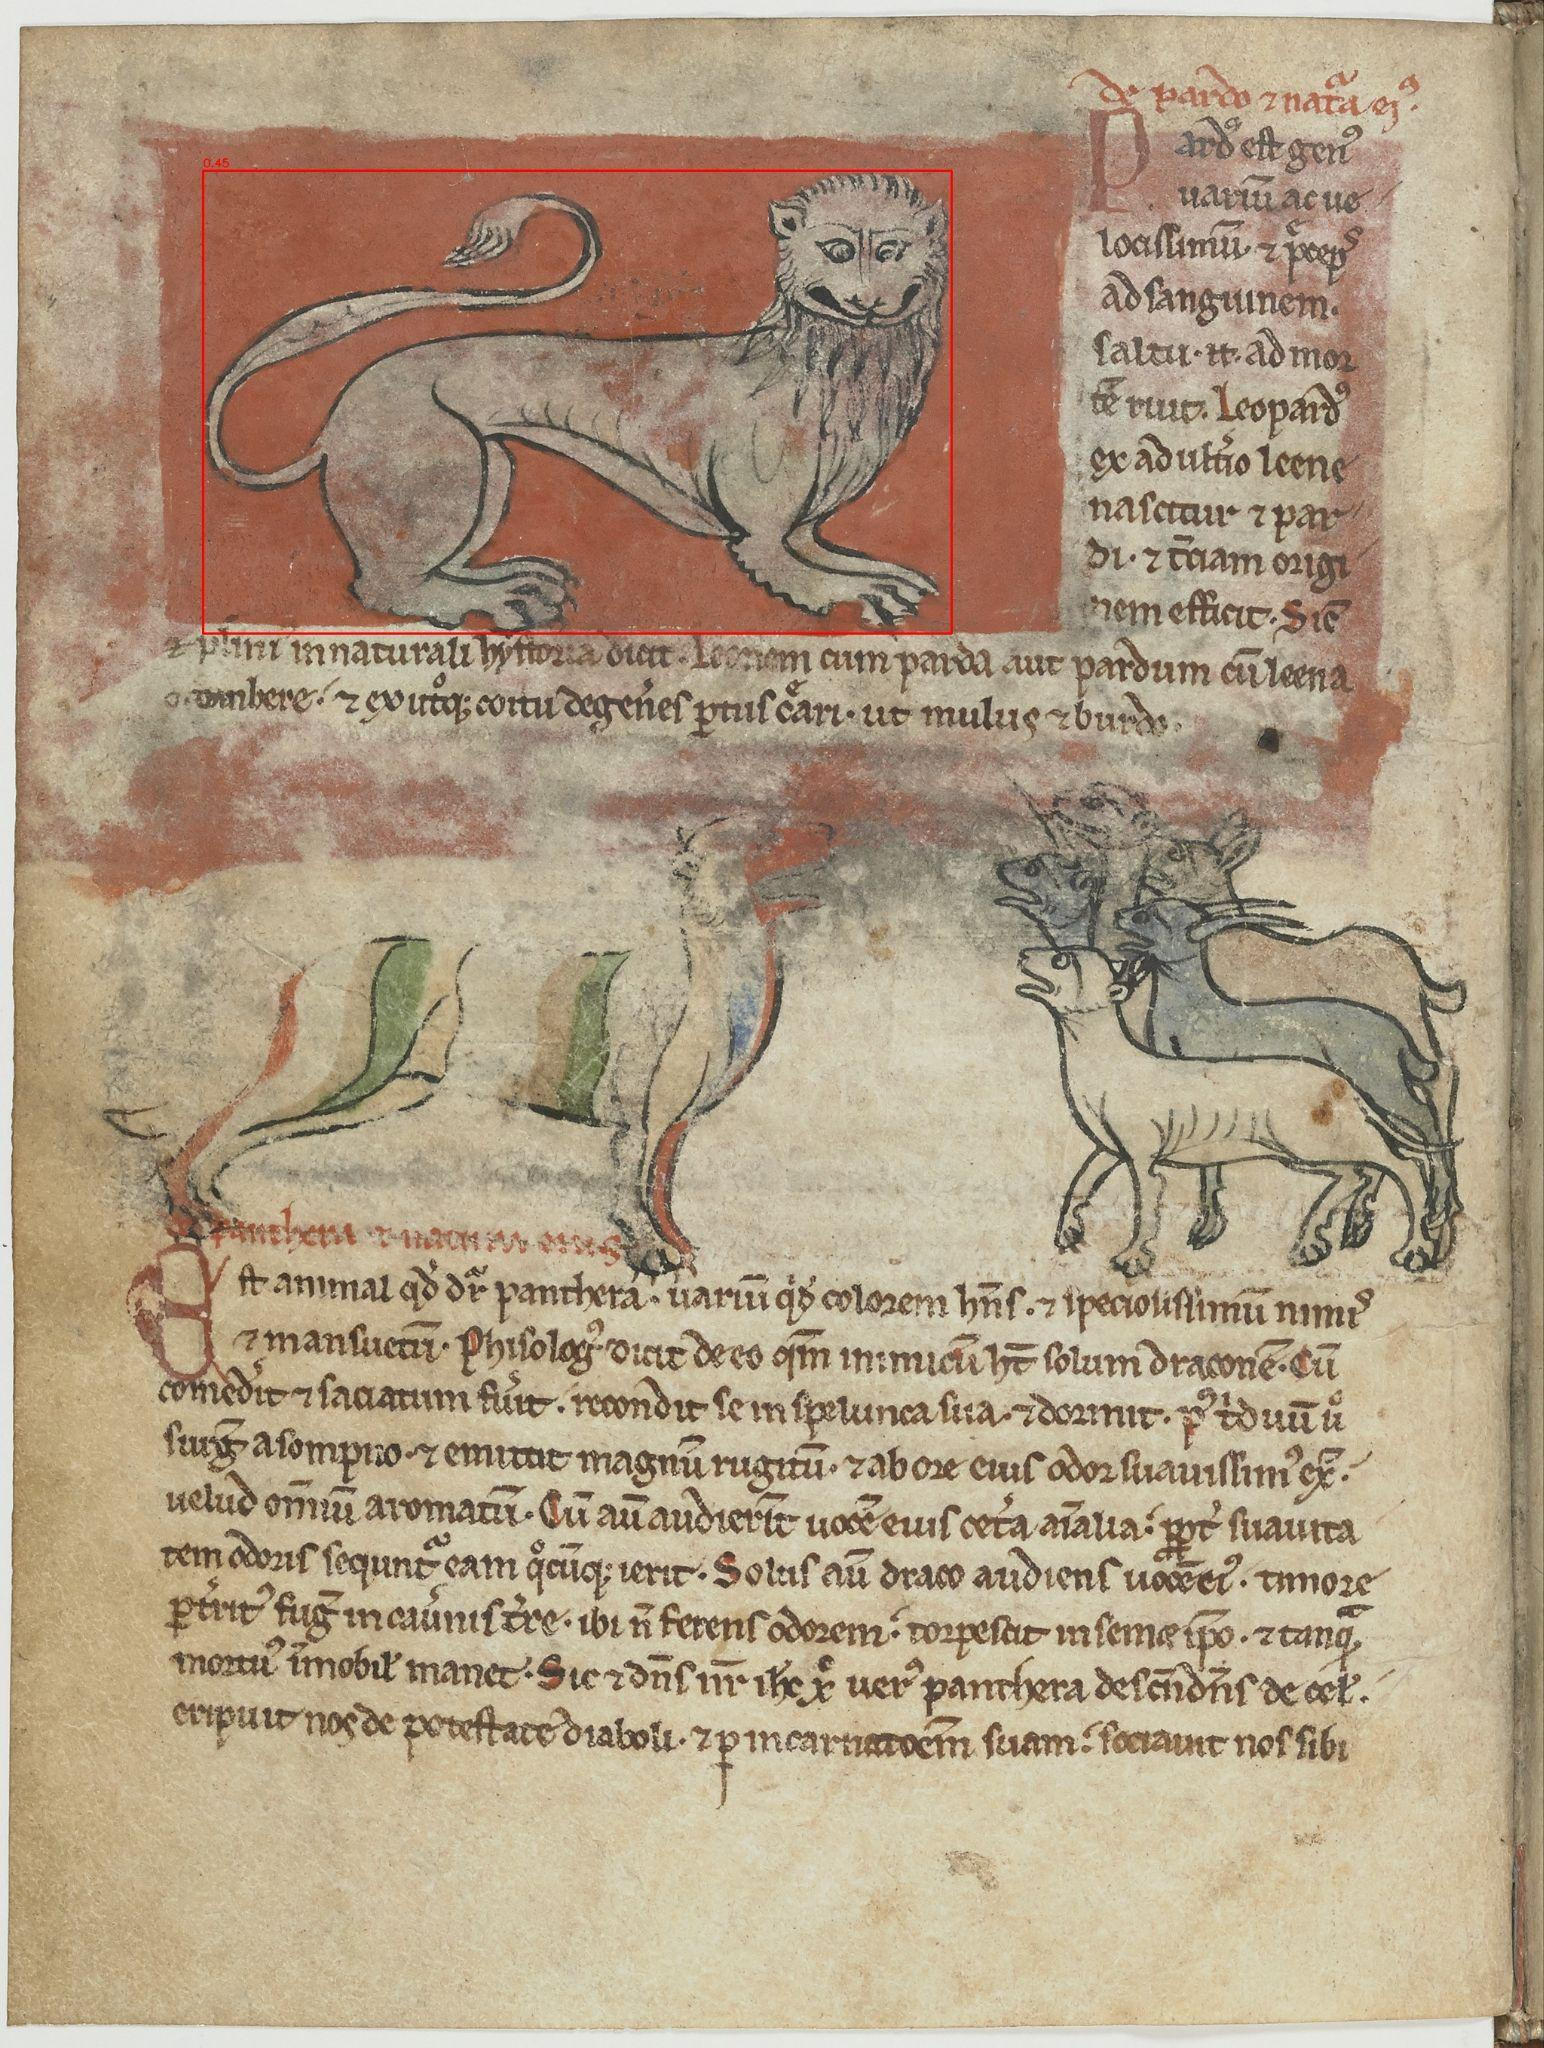 0.45
de pardo ⁊ natᷓa eiꝰ.
Pardꝰ est genꝰ
uariū ac ue
locissimū. ⁊ p̄ceps
ad sanguinem.
saltu. n̄. ad mor
tē ruit. Leopardꝰ
ex adulṫio leene
nascitur ⁊ par
di. ⁊ t̄ciam origi
nem efficit. Sic̄
⁊ plini in naturali hystoria dicit. Leonem cum parda aut pardum cū leena
⁊ ex utͦq; coitu degen̓es ptus c̓ari. ut mulus ⁊ burdo.
panthera ⁊ natura eius
Est animal qd̓ dr̄ panthera. uariū q̓dē colorem hn̄s. ⁊ speciosissimū nimis
⁊ mansuetū. Phisologꝰ dicit de eo qm̄ inimicū ht̄ solum draconē. Cū
comed̓it ⁊ saciatum fu̓it. recondit se in spelunca sua. ⁊ dormit. pꝰ t̓duū u̓
surḡ a sompno. ⁊ emittit magnū rugitū. ⁊ ab ore eius odor suauissimꝰ ex̄.
uelud om̄iū aromatū. Cū aū audierīt uocē eius cet̓a aīalia. ꝓpt̓ suauita
tem odoris sequntᷓ eam q̊cūq; ierit. Solus aū draco audiens uocē eiꝰ. timore
pt̓ritꝰ fuḡ in cau̓nis t̓re. ibi n̄ ferens odorem. torpescit in semet ip̄o. ⁊ tanqᷓ
mortuꝰ īmobil̓ manet. Sic ⁊ dn̄s nr̄ ih̄c xp̄c uerꝰ panthera descn̄dēs de cel̓.
eripuit nos de potestate diaboli. ⁊ ꝑ incarnatoēm suam. sociauit nos sibi